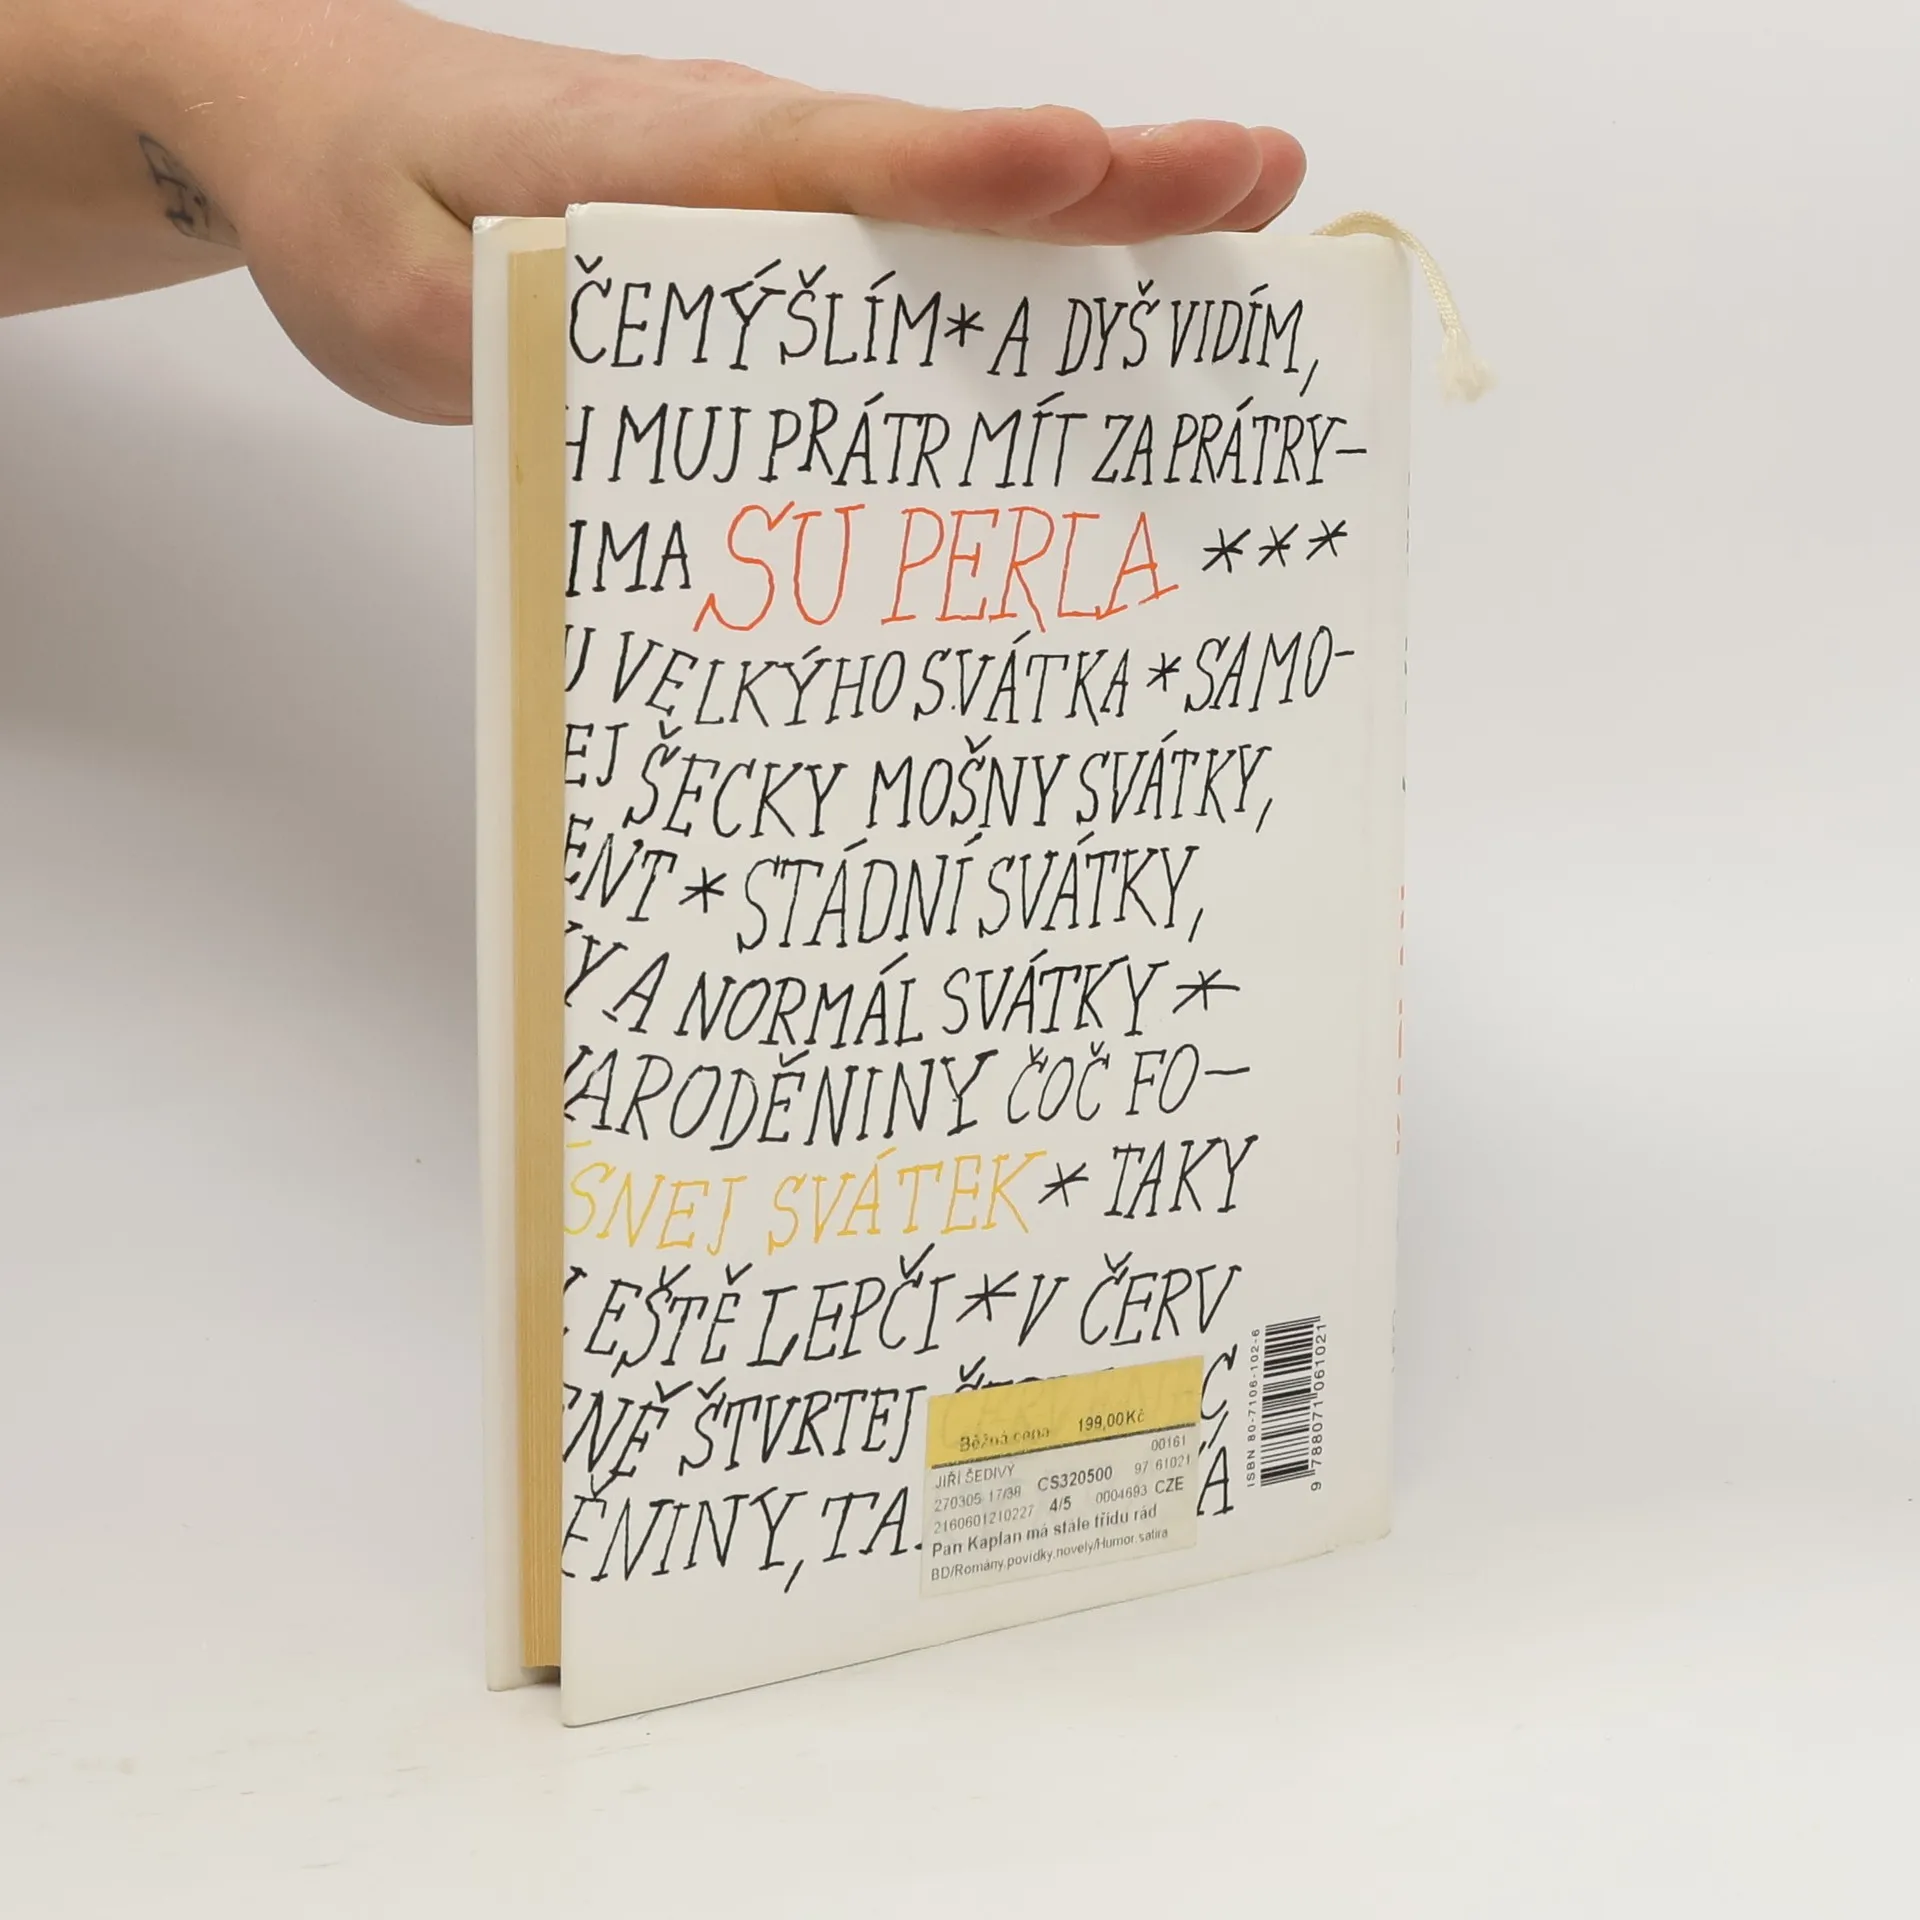 ČEMÝŠLÍM * A DYŠ VIDÍM,
H MUJ PRÁTR MÍT ZA PRÁTRY–
IMA SU PERLA ***
U VELKÝHO SVÁTKA * SAMO–
EJ ŠECKY MOŠNY SVÁTKY,
ENT * STÁDNÍ SVÁTKY,
Y A NORMÁL SVÁTKY *
NARODĚNINY ČOČ FO–
ŠNEJ SVÁTEK * TAKY
EŠTĚ LEPČI * V ČERV
ENĚ ŠTVRTEJ
ĚNINY, TA
Běžná cena 199,00Kč
00161
JIŘÍ ŠEDIVÝ CS320500 97 61021
270305 17/38 4/5 0004693 CZE
2160601210227
Pan Kaplan má stále třídu rád
BD/Romány,povídky,novely/Humor,satira
ISBN 80-7106-102-6
9 788071 061021